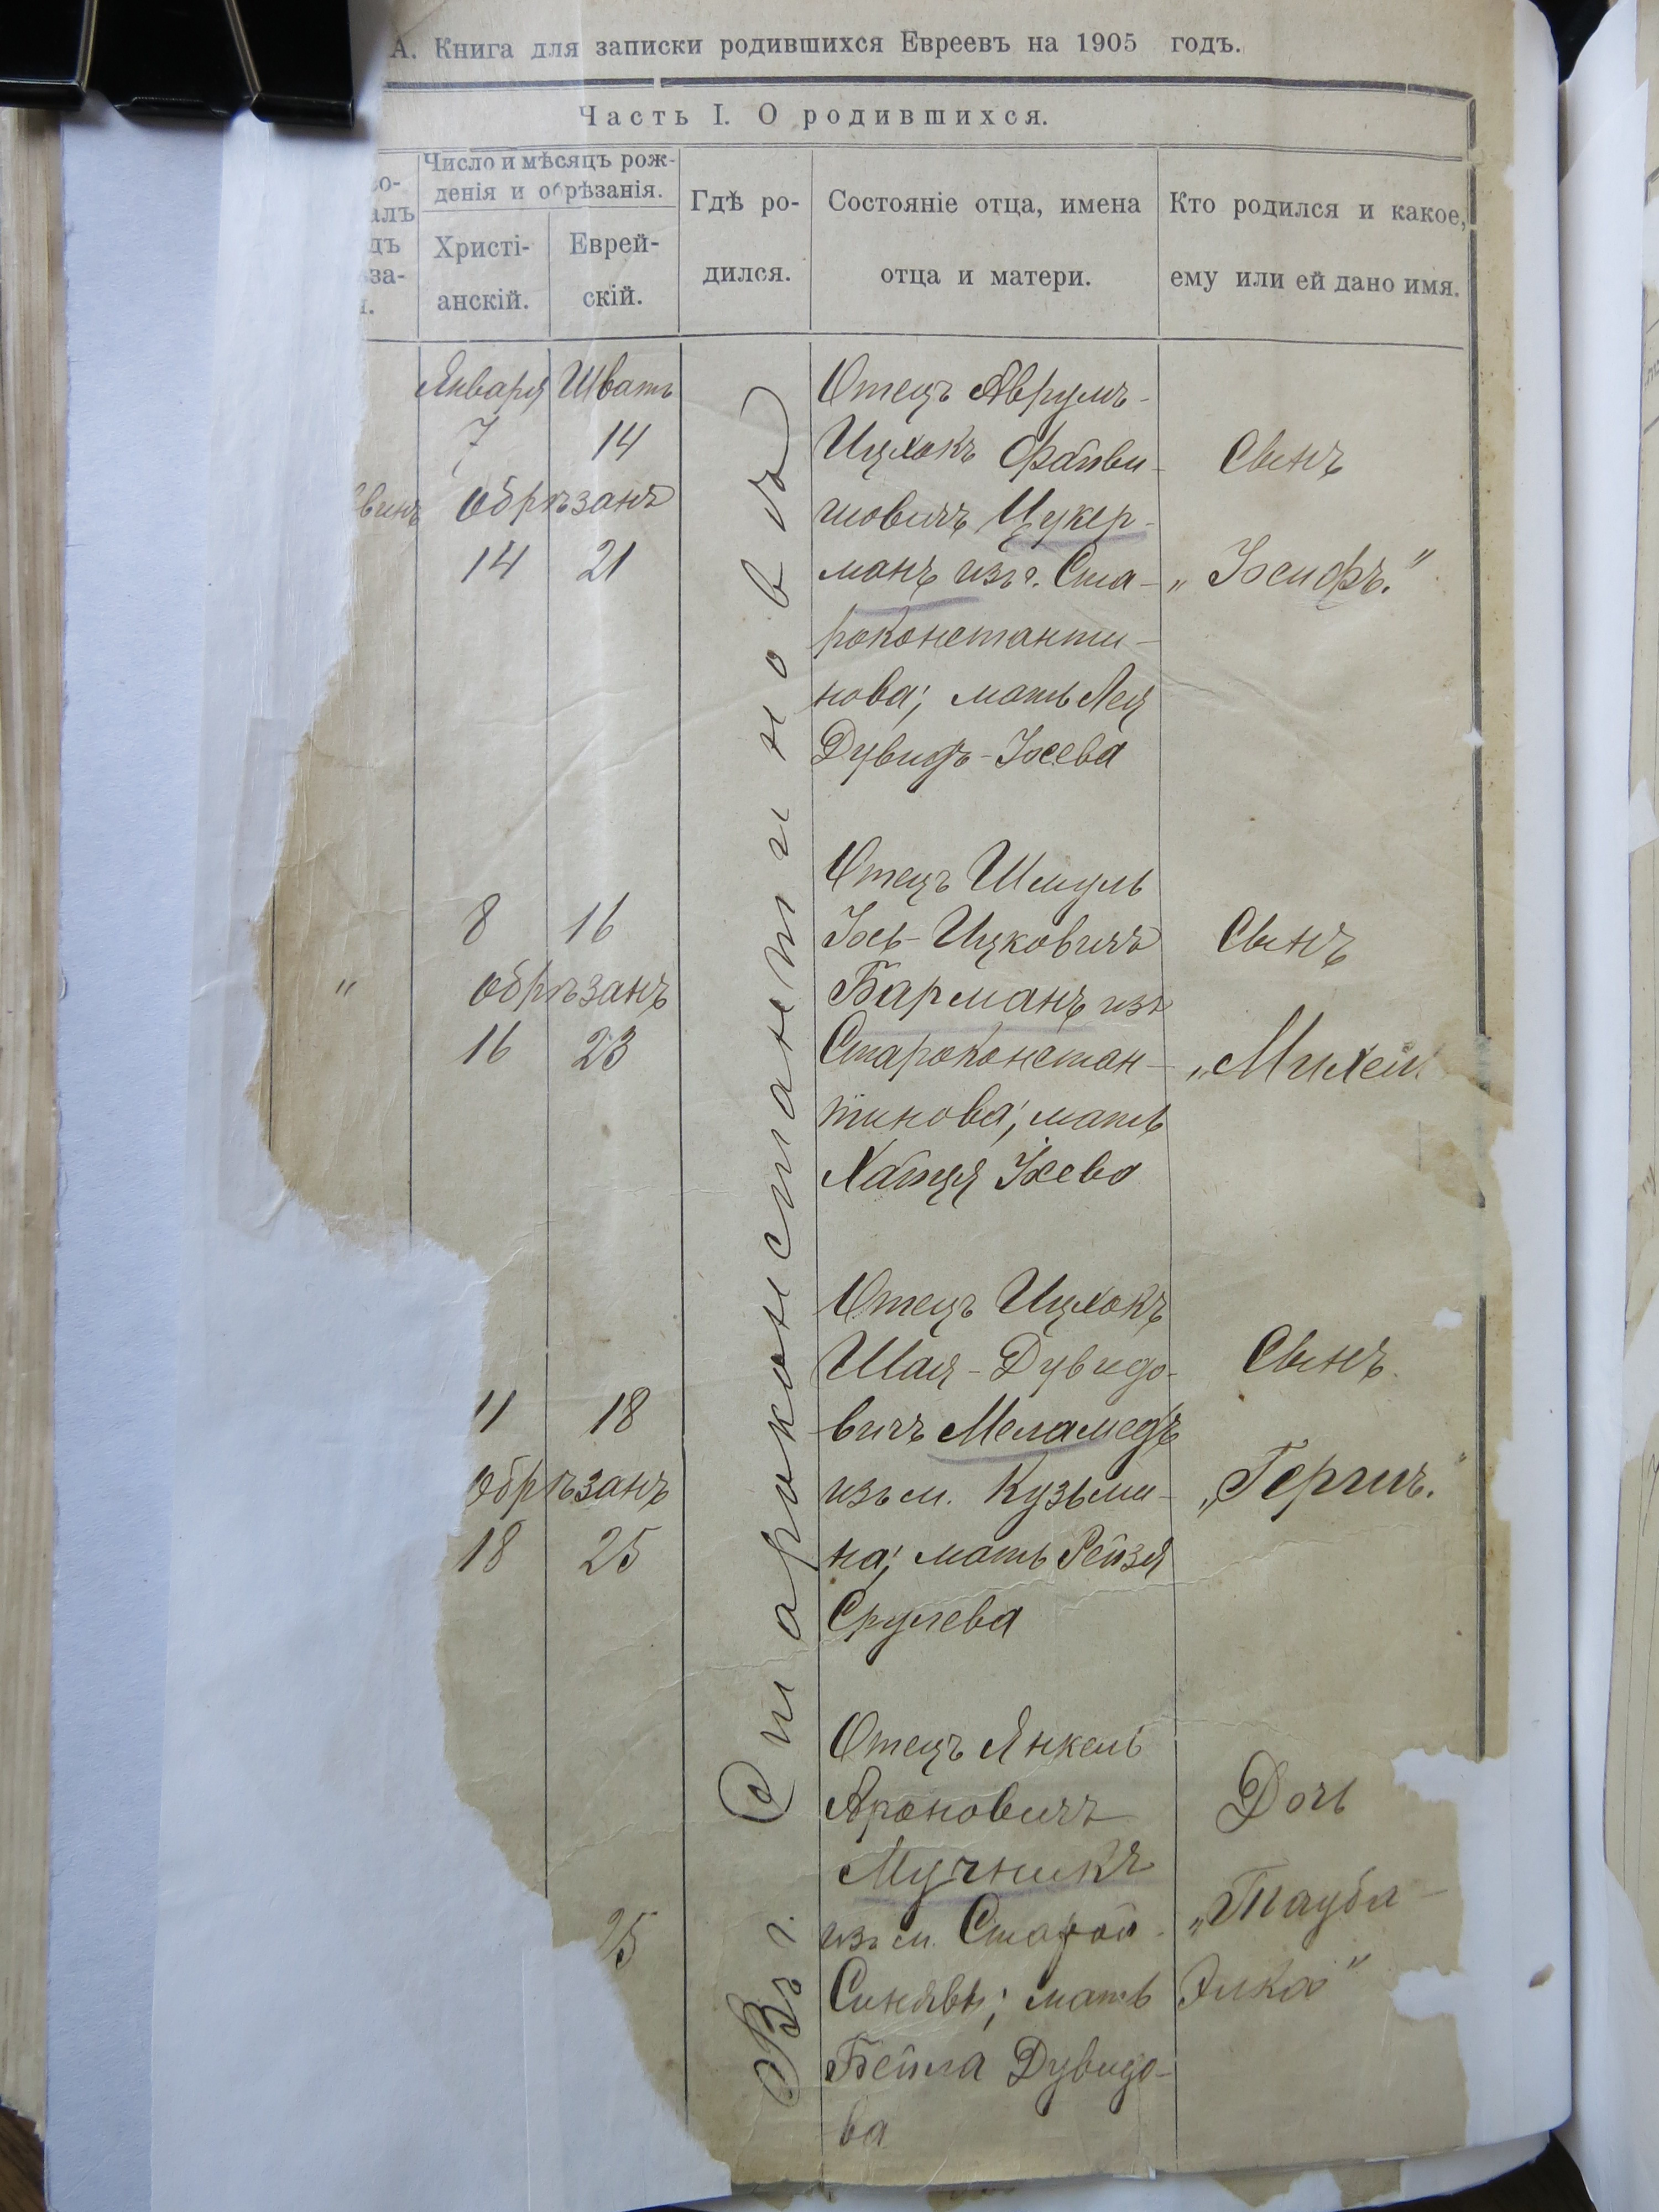 А. Книга для записки родившихся Евреевъ на 1905 годъ.
Часть I. О родившихся.
Число и мѣсяцъ рож-
денія и обрѣзанія.
Христі-
анскій.
Еврей-
скій.
Гдѣ ро-
дился.
Состояніе отца, имена
отца и матери.
Кто родился и какое,
ему или ей дано имя.
Въ г. Староконстантиновѣ
Января Шватъ
7 14
обрѣзанъ
14 21
Отецъ Аврумъ-
Ицхокъ Файви-
шовичъ Цукер-
манъ изъ г. Ста-
роконстанти-
нова; мать Лея
Дувидъ-Іосева
Сынъ
„Іосифъ."
8 16
" обрѣзанъ
16 23
Отецъ Шмуль
Іось-Ицковичъ
Барманъ изъ
Староконстан-
тинова; мать
Хайця Іосева
Сынъ
„Михель
11 18
обрѣзанъ
18 25
Отецъ Ицхокъ
Шая-Дувидо-
вичъ Меламедъ
изъ м. Кузьми-
на; мать Рейзя
Срулева
Сынъ
„Гершъ."
25
Отецъ Янкель
Ароновичъ
Мучникъ
изъ м. Старой
Синявы; мать
Бейла Дувидо-
ва
Дочь
„Тауба-
Элка"